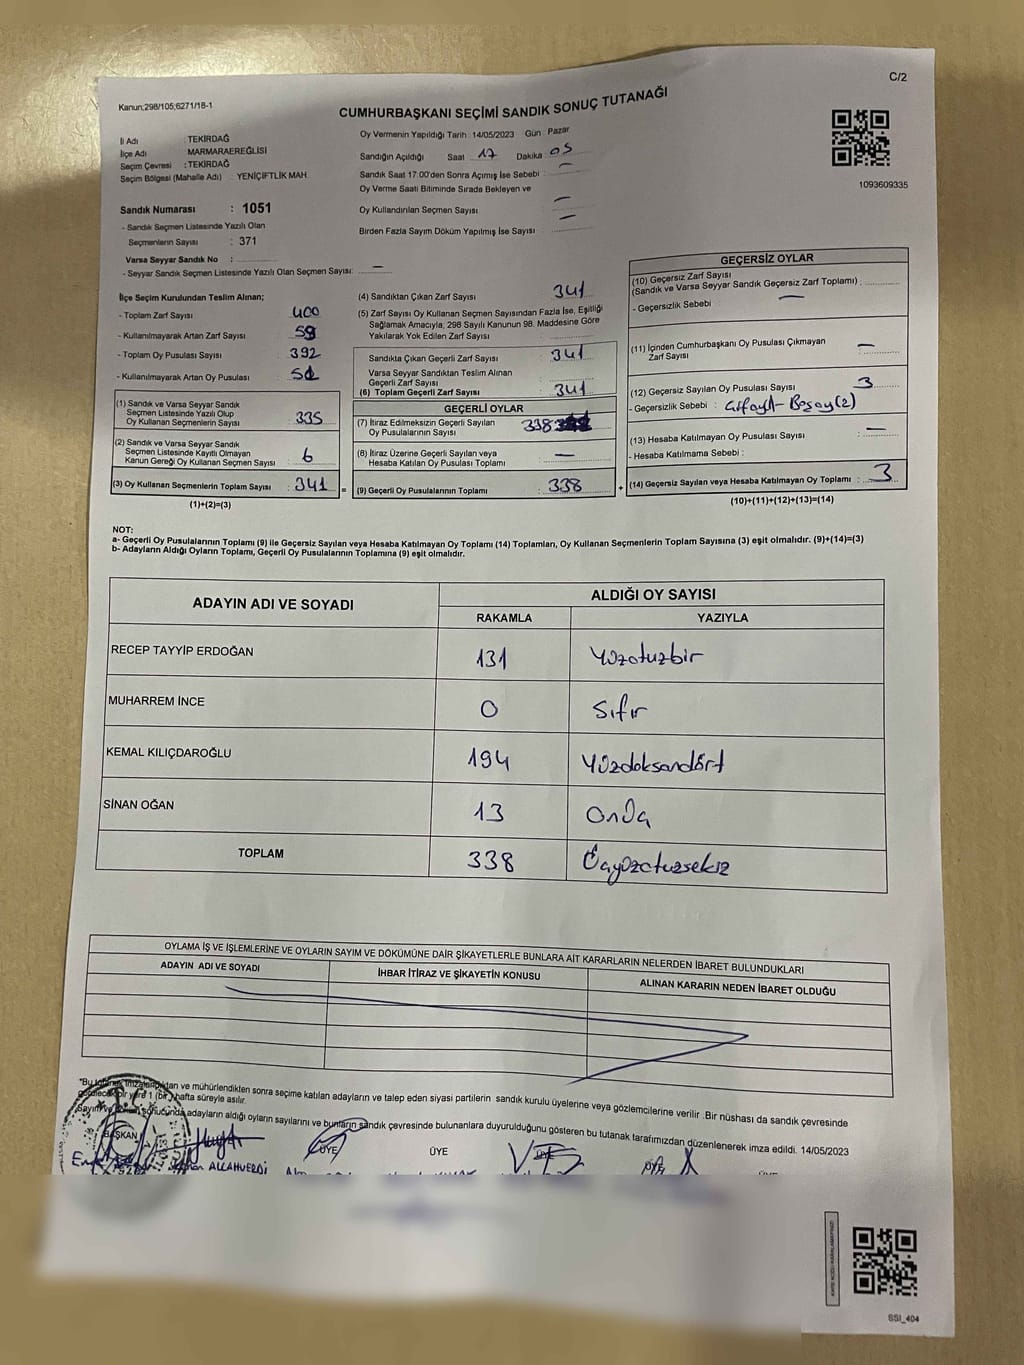 C/2
Kanun;298/105;6271/18-1
CUMHURBAŞKANI SEÇİMİ SANDIK SONUÇ TUTANAĞI
İl Adı : TEKİRDAĞ
İlçe Adı MARMARAEREĞLİSİ
Seçim Çevresi : TEKİRDAĞ
Seçim Bölgesi (Mahalle Adı) : YENİÇİFTLİK MAH.
Oy Vermenin Yapıldığı Tarih :14/05/2023 Gün : Pazar
Sandığın Açıldığı Saat : 17 Dakika : 05
Sandık Saat 17:00'den Sonra Açılmış İse Sebebi : —
Oy Verme Saati Bitiminde Sırada Bekleyen ve
Oy Kullandırılan Seçmen Sayısı —
Birden Fazla Sayım Döküm Yapılmış İse Sayısı —
1093609335
Sandık Numarası : 1051
- Sandık Seçmen Listesinde Yazılı Olan
Seçmenlerin Sayısı : 371
Varsa Seyyar Sandık No :
- Seyyar Sandık Seçmen Listesinde Yazılı Olan Seçmen Sayısı: —
İlçe Seçim Kurulundan Teslim Alınan;
- Toplam Zarf Sayısı : 400
- Kullanılmayarak Artan Zarf Sayısı : 59
- Toplam Oy Pusulası Sayısı : 392
- Kullanılmayarak Artan Oy Pusulası :
(1) Sandık ve Varsa Seyyar Sandık
Seçmen Listesinde Yazılı Olup
Oy Kullanan Seçmenlerin Sayısı : 335
(2) Sandık ve Varsa Seyyar Sandık
Seçmen Listesinde Kayıtlı Olmayan
Kanun Gereği Oy Kullanan Seçmen Sayısı : 6
(3) Oy Kullanan Seçmenlerin Toplam Sayısı : 341 =
(1)+(2)=(3)
(4) Sandıktan Çıkan Zarf Sayısı : 341
(5) Zarf Sayısı Oy Kullanan Seçmen Sayısından Fazla İse, Eşitliği
Sağlamak Amacıyla, 298 Sayılı Kanunun 98. Maddesine Göre
Yakılarak Yok Edilen Zarf Sayısı :
Sandıkta Çıkan Geçerli Zarf Sayısı : 341
Varsa Seyyar Sandıktan Teslim Alınan
Geçerli Zarf Sayısı
(6) Toplam Geçerli Zarf Sayısı : 341
GEÇERLİ OYLAR
(7) İtiraz Edilmeksizin Geçerli Sayılan
Oy Pusulalarının Sayısı : 338
(8) İtiraz Üzerine Geçerli Sayılan veya
Hesaba Katılan Oy Pusulası Toplamı : —
(9) Geçerli Oy Pusulalarının Toplamı : 338 +
GEÇERSİZ OYLAR
(10) Geçersiz Zarf Sayısı
(Sandık ve Varsa Seyyar Sandık Geçersiz Zarf Toplamı) :
- Geçersizlik Sebebi : —
(11) İçinden Cumhurbaşkanı Oy Pusulası Çıkmayan
Zarf Sayısı : —
(12) Geçersiz Sayılan Oy Pusulası Sayısı : 3
- Geçersizlik Sebebi :
(13) Hesaba Katılmayan Oy Pusulası Sayısı : —
- Hesaba Katılmama Sebebi :
(14) Geçersiz Sayılan veya Hesaba Katılmayan Oy Toplamı : 3
(10)+(11)+(12)+(13)=(14)
NOT:
a- Geçerli Oy Pusulalarının Toplamı (9) ile Geçersiz Sayılan veya Hesaba Katılmayan Oy Toplamı (14) Toplamları, Oy Kullanan Seçmenlerin Toplam Sayısına (3) eşit olmalıdır. (9)+(14)=(3)
b- Adayların Aldığı Oyların Toplamı, Geçerli Oy Pusulalarının Toplamına (9) eşit olmalıdır.
ADAYIN ADI VE SOYADI ALDIĞI OY SAYISI
RAKAMLA YAZIYLA
RECEP TAYYİP ERDOĞAN 131 Yüzotuzbir
MUHARREM İNCE 0 Sıfır
KEMAL KILIÇDAROĞLU 194 Yüzdoksandört
SİNAN OĞAN 13 Onüç
TOPLAM 338 Üçyüzotuzsekiz
OYLAMA İŞ VE İŞLEMLERİNE VE OYLARIN SAYIM VE DÖKÜMÜNE DAİR ŞİKAYETLERLE BUNLARA AİT KARARLARIN NELERDEN İBARET BULUNDUKLARI
ADAYIN ADI VE SOYADI İHBAR İTİRAZ VE ŞİKAYETİN KONUSU ALINAN KARARIN NEDEN İBARET OLDUĞU
"Bu ve mühürlendikten sonra seçime katılan adayların ve talep eden siyasi partilerin sandık kurulu üyelerine veya gözlemcilerine verilir .Bir nüshası da sandık çevresinde
bir yere 1 (bir) hafta süreyle asılır.
sonucunda adayların aldığı oyların sayılarını ve bunların sandık çevresinde bulunanlara duyurulduğunu gösteren bu tutanak tarafımızdan düzenlenerek imza edildi. 14/05/2023
BAŞKAN ÜYE ÜYE ÜYE ÜYE
ALLAHVERDİ
SSI_404